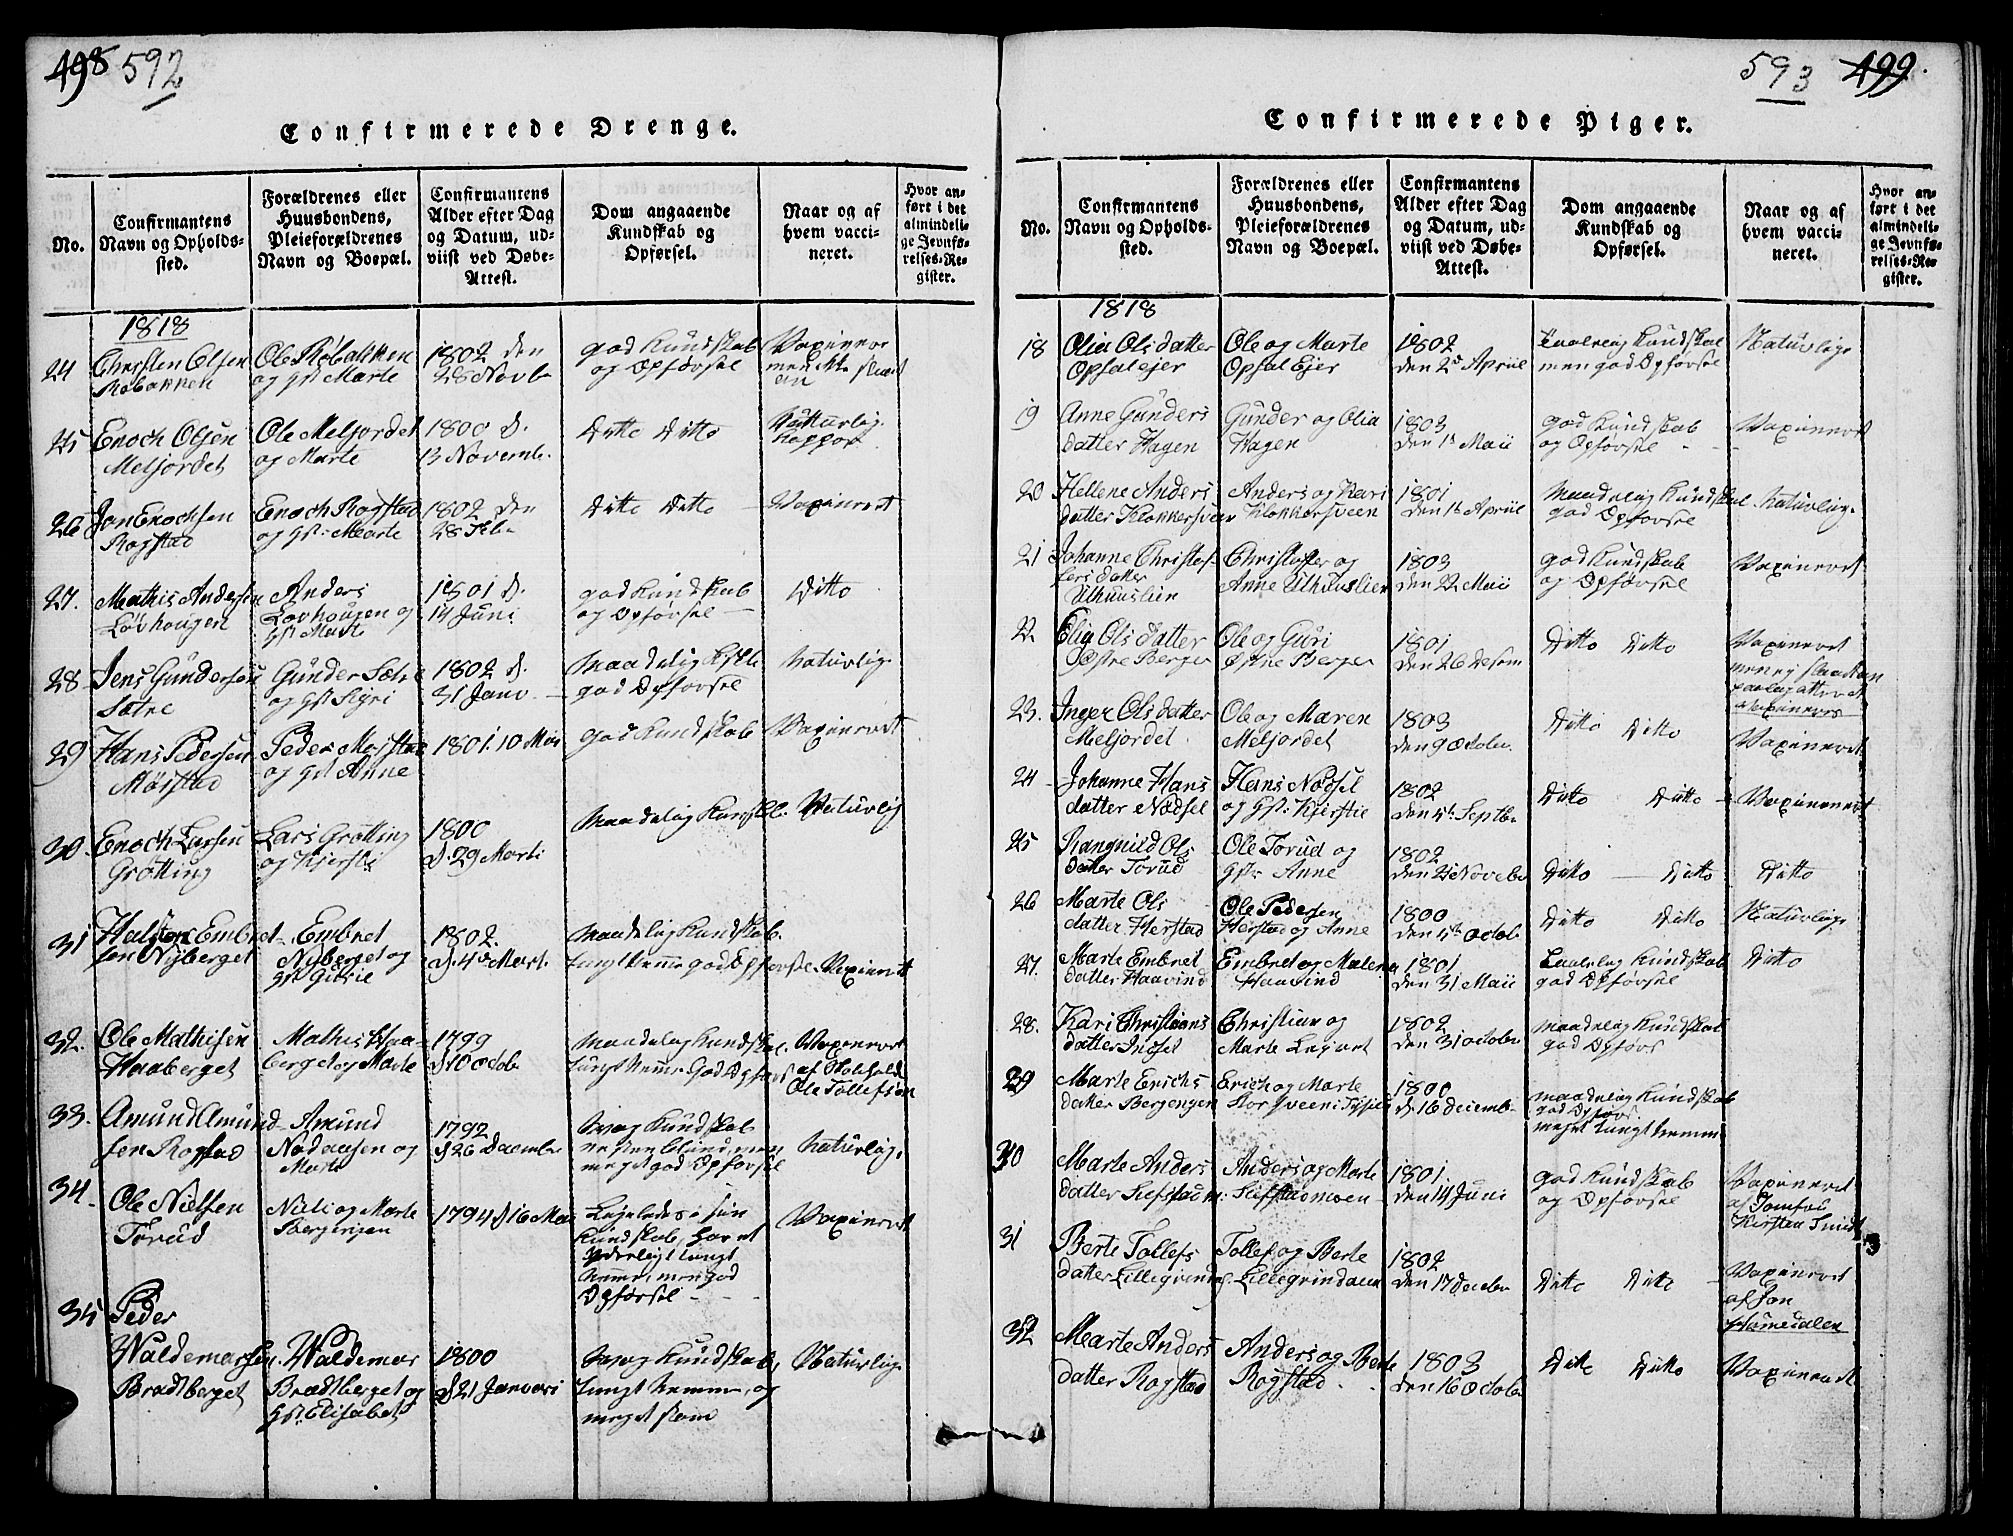 498 592
Confirmerede Drenge.
No.
Confirmantens
Navn og Opholds-
sted.
Forældrenes eller
Huusbondens,
Pleieforældrenes
Navn og Boepæl.
Confirmantens
Alder efter Dag
og Datum, ud-
viist ved Døbe-
Attest.
Dom angaaende
Kundskab og
Opførsel.
Naar og af
hvem vacci-
neret.
Hvor an-
ført i det
almindeli-
ge Jevnfø-
relses-Re-
gister.
1818
24
Christen Olsen
Røbakken
Ole Røbakken
og Marte
1802 den
28 Novb
god Kundskab
og Opførsel
Vaxineret
25
Enoch Olsen
Meljordet
Ole Meljordet
og Marte
1800 d.
13 Novemb.
Ditto Ditto
26
Jon Enochsen
Rogstad
Enoch Rogstad
og Marte
1802 den
28 Feb
Ditto Ditto
Vaxineret
27.
Mathis Andersen
Løvhougen
Anders
Løvhougen og
Marte
1801 d.
14 Juni
god Kundskab
og Opførsel
Ditto
28
Jens Gundersen
Sætre
Gunder Sætre
og Sigri
1802 d.
31 Janv.
god Opførsel
Naturlig
29
Hans Pedersen
Møistad
Peder Møistad
og Anne
1801. 10 Mai
god Kundskab
Vaxineret
30
Enoch Larsen
Grøtting
Lars Grøtting
og Kjersti
1800
d. 29 Marti
Maadelig Kundskb.
Naturlig
31
Halsten Embret-
sen Nyberget
Embret
Nyberget og
1802.
d. 4de Mart.
Maadelig Kundskab.
tungt Nemme god Opførsel.
Vaxineret
32.
Ole Mathisen
Haaberget
Mathis Haa-
berget og Marte
1799
d 10 Octob
Maadelig Kundskab.
tungt Nemme God Opførsel
Vaxineret
af
Ole Tollefsen
33.
Amund Amund-
sen Rogstad
Amund
og
Marte
1792
d 26 Decembe
svag Kundskab
næsten blind, men
meget god Opførsel
Naturlig.
34.
Ole Nielsen
Torud
Niels og Marte
Bergengen
1794 d 16 Mai
i sin
Kundskab, har et
tungt
Nemme, men god
Opførsel
Vaxineret
35
Peder
Waldemarsen
Brædtberget
Waldemar
Brædtberget og
Elisabet
1800
d 21 Januari
svag Kundskab,
tungt Nemme, og
meget
Naturlig
593 499.
Confirmerede Piger.
No.
Confirmantens
Navn og Opholds-
sted.
Forældrenes eller
Huusbondens,
Pleieforældrenes
Navn og Boepæl.
Confirmantens
Alder efter Dag
og Datum, ud-
viist ved Døbe-
Attest.
Dom angaaende
Kundskab og
Opførsel.
Naar og af
hvem vacci-
neret.
Hvor an-
ført i det
almindeli-
ge Jevnfø-
relses-Re-
gister.
1818
18
Olia Olsdatter
Opsal ejer
Ole og Marte
Opsal Ejer
1802
den 2d Apriil
Kundskab
men god Opførsel
Naturlig
19
Anne Gunders
datter Hagen
Gunder og Olia
Hagen
1803
den 1st Maii
god Kundskab
og Opførsel
Vaxineret
20
Hellene Anders
datter Klokkersveen
Anders og Kari
Klokkersveen
1801
den 1st Apriil
Maadelig Kundskab
god Opførsel
Naturlig
21
Johanne Christof-
fersdatter
Uthuuslien
Christoffer og
Anne Uthuuslien
1803
den 22 Maii
god Kundskab
og Opførsel
Vaxineret
22
Elia Olsdatter
Østre Berger
Ole og Guri
Østre Berger
1801
den 26 Desem
Ditto Ditto
Vaxineret
23.
Inger Olsdatter
Meljordet
Ole og Maren
Meljordet
1803
den 9 Octobr.
Ditto Ditto
Vaxineret
24
Johanne Hans
datter Nødsel
Hans Nødsel
og Kjerstie
1802
den 4de Septbr
Ditto Ditto
Vaxineret
25
Rangnild Ols
datter Torud
Ole Torud og
Anne
1802
den Novebr
Ditto Ditto
Ditto
26
Marte Ols
datter Herstad
Ole Pedersen
Herstad og Anne
1800
den 4de Octob
Ditto Ditto
Naturlig
27.
Marte Embret
datter Haavind
Embret og Malena
Haavind
1801
den 31 Maii
Kundskab
god Opførsel
Ditto
28.
Kari Christians
datter Indset
Christian og
Marte
1802
den 31 Octobr
maadelig Kundskab
god Opførs
29
Marte Erichs
datter Bergengen
Erich og Marte
1800
d. 16 Decemb
maadelig Kundskab
god Opførs
meget tungt nemme
30
Marte Anders
datter
Anders og Marte
1801.
den 14 Juni
god Kundskab
og Opførsel
Vaxineret
af Jomfru
Kirsten Smidt
31
Berte Tollefs
datter Lillegrind
Tollef og Berte
Lillegrindalen
1802
den 17 Decbr
Ditto Ditto
Vaxineret
af Jon
32
Marte Anders
datter Rogstad
Anders og Berte
Rogstad
1803
den 16 Octob
Ditto Ditto
Vaxineret